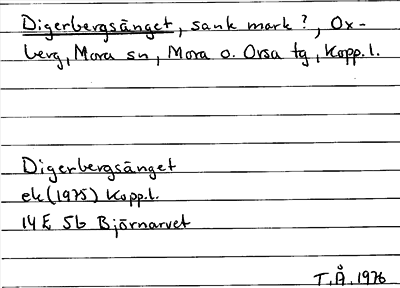 Digerbergsänget, sank mark?, Ox-
berg, Mora sn, Mora o. Orsa tg, Kopp.l.
Digerbergsänget
ek (1975) Kopp.l.
14E 5b Björnarvet
T.Å. 1976